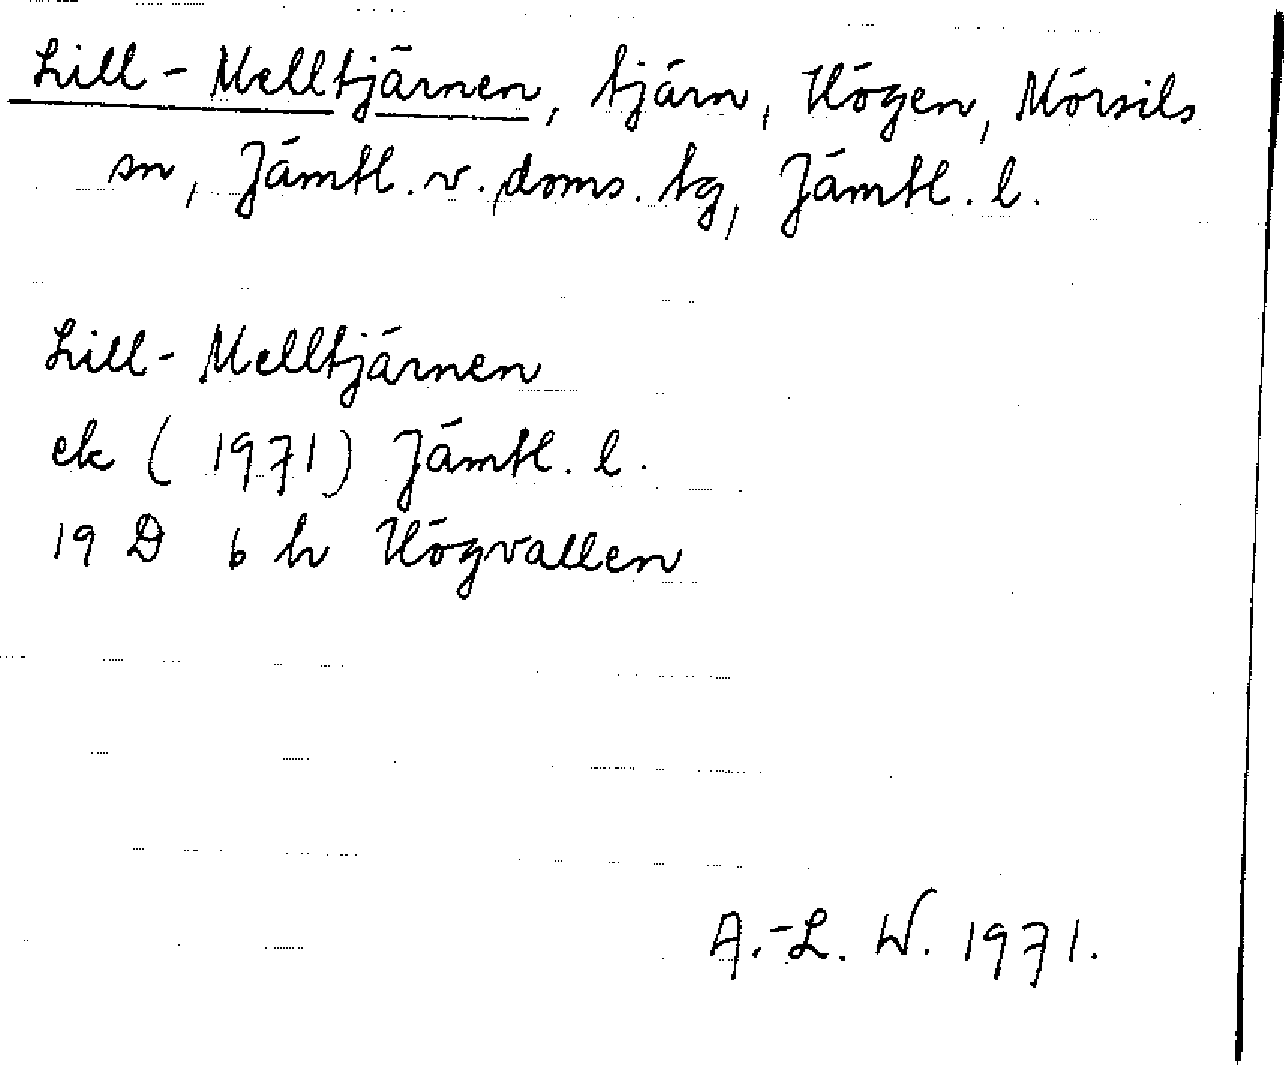 Lill-Melltjärnen, tjärn, Högen, Mörsils
sn, Jämtl. v. doms. tg, Jämtl. l.
Lill-Melltjärnen
ek (1971) Jämtl. l.
19 D 6 h Högvallen
A.-L. W. 1971.